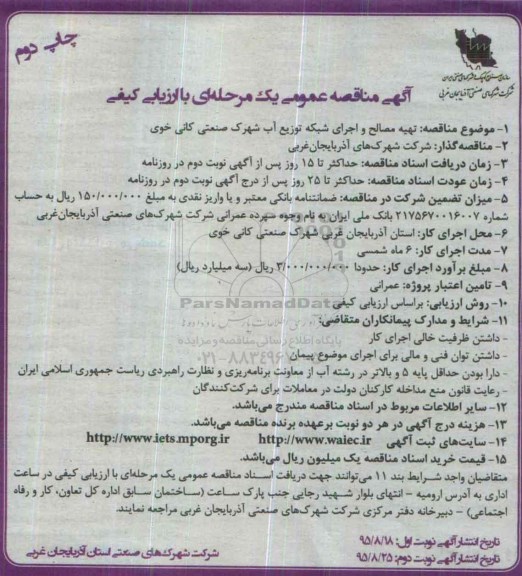 چاپ دوم
شرکت شهرک‌های صنعتی آذربایجان غربی
آگهی مناقصه عمومی یک مرحله‌ای با ارزیابی کیفی
۱- موضوع مناقصه: تهیه مصالح و اجرای شبکه توزیع آب شهرک صنعتی کانی خوی
۲- مناقصه‌گذار: شرکت شهرک‌های آذربایجان‌غربی
۳- زمان دریافت اسناد مناقصه: حداکثر تا ۱۵ روز پس از آگهی نوبت دوم در روزنامه
۴- زمان عودت اسناد مناقصه: حداکثر تا ۲۵ روز پس از درج آگهی نوبت دوم در روزنامه
۵- میزان تضمین شرکت در مناقصه: ضمانتنامه بانکی معتبر و یا واریز نقدی به مبلغ ۱۵۰/۰۰۰/۰۰۰ ریال به حساب
شماره ۲۱۷۵۶۷۰۰۱۶۰۰۷ بانک ملی ایران به نام وجوه سپرده عمرانی شرکت شهرک‌های صنعتی آذربایجان‌غربی
۶- محل اجرای کار: استان آذربایجان غربی شهرک صنعتی کانی خوی
۷- مدت اجرای کار: ۶ ماه شمسی
۸- مبلغ برآورد اجرای کار: حدودا ۳/۰۰۰/۰۰۰/۰۰۰ ریال (سه میلیارد ریال)
۹- تامین اعتبار پروژه: عمرانی
۱۰- روش ارزیابی: براساس ارزیابی کیفی
ParsNamadData
۱۱- شرایط و مدارک پیمانکاران متقاضی:
پایگاه اطلاع رسانی مناقصه و مزایده
- داشتن ظرفیت خالی اجرای کار
- داشتن توان فنی و مالی برای اجرای موضوع پیمان
- دارا بودن حداقل پایه ۵ و بالاتر در رشته آب از معاونت برنامه‌ریزی و نظارت راهبردی ریاست جمهوری اسلامی ایران
- رعایت قانون منع مداخله کارکنان دولت در معاملات برای شرکت‌کنندگان
۱۲- سایر اطلاعات مربوط در اسناد مناقصه مندرج می‌باشد.
۱۳- هزینه درج آگهی در هر دو نوبت برعهده برنده مناقصه می‌باشد.
۱۴- سایت‌های ثبت آگهی http://www.waiec.ir http://www.iets.mporg.ir
۱۵- قیمت خرید اسناد مناقصه یک میلیون ریال می‌باشد.
متقاضیان واجد شرایط بند ۱۱ می‌توانند جهت دریافت اسناد مناقصه عمومی یک مرحله‌ای با ارزیابی کیفی در ساعت
اداری به آدرس ارومیه - انتهای بلوار شهید رجایی جنب پارک ساعت (ساختمان سابق اداره کل تعاون، کار و رفاه
اجتماعی) - دبیرخانه دفتر مرکزی شرکت شهرک‌های صنعتی آذربایجان غربی مراجعه نمایند.
تاریخ انتشار آگهی نوبت اول: ۹۵/۸/۱۸
تاریخ انتشار آگهی نوبت دوم: ۹۵/۸/۲۵
شرکت شهرک‌های صنعتی استان آذربایجان غربی